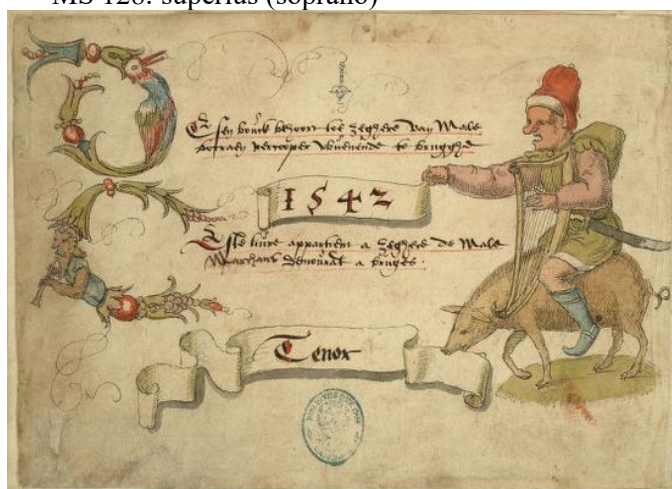 MS 128: superius (soprano)
Esen bouck behoort toe zeghere van Male
vercooper wuenende te brugghe
1542
liure appartient a zeghere de Male
Marchans demourãt a bruges.
Tenor